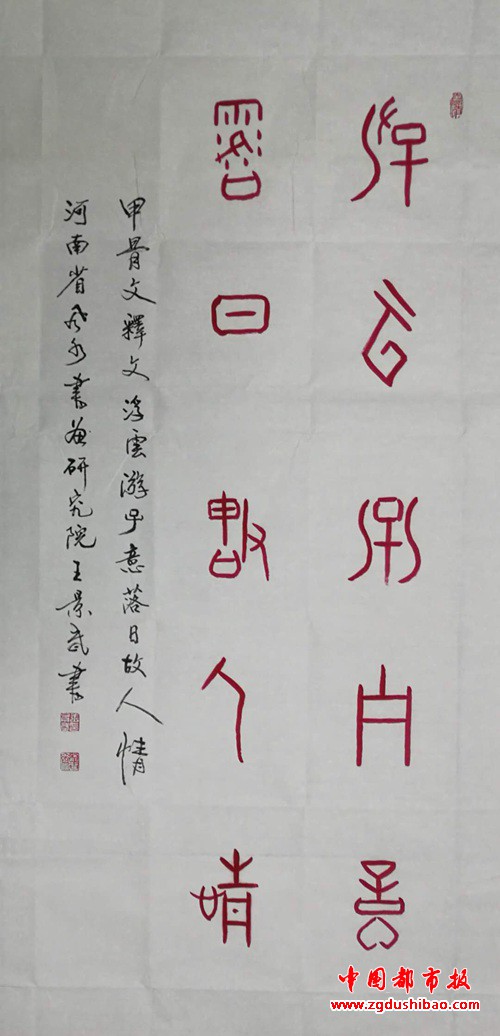 浮雲游子意
落日故人情
甲骨文釋文浮雲游子意落日故人情
河南省風水書畫研究院王景武書
中国都市报
www.zgdushibao.com